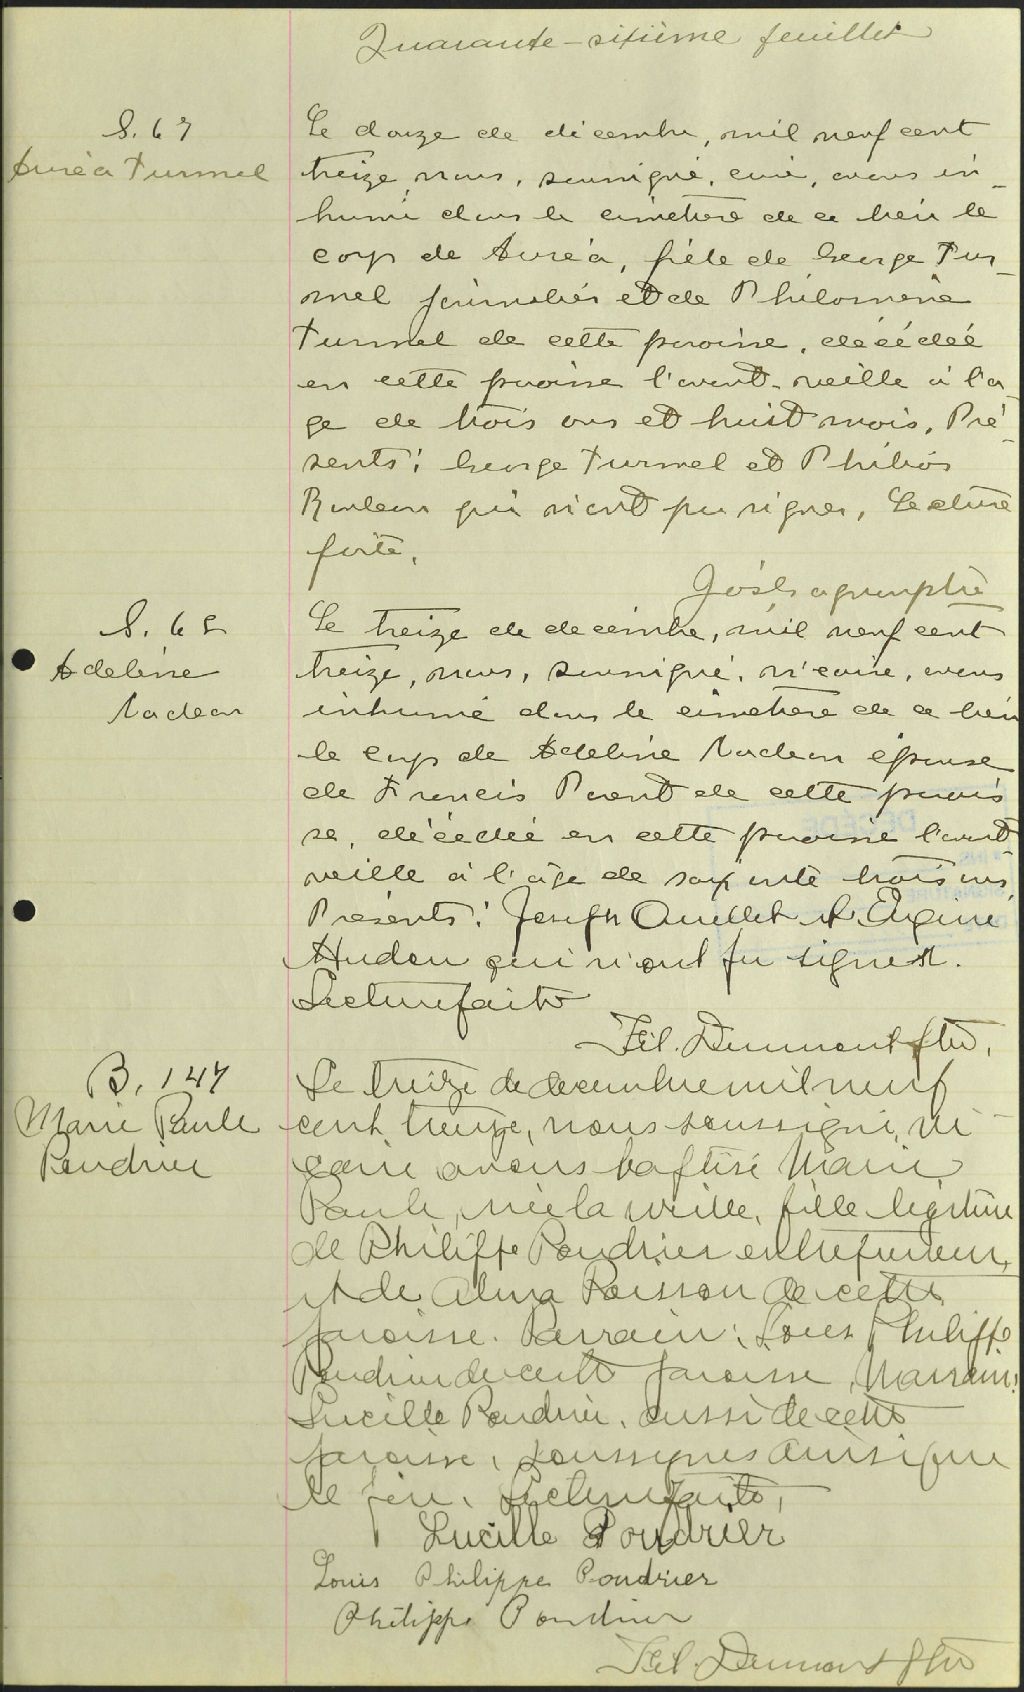 Quarante-sixième feuillet
S. 67
Auréa Turmel
Le douze de décembre, mil neuf cent
treize, nous, soussigné, curé, avons in-
humé dans le cimetière de ce lieu le
corps de Auréa, fille de George Tur-
mel journalier et de Philomène
Turmel de cette paroisse, décédée
en cette paroisse l'avant-veille à l'a-
ge de trois ans et huit mois. Pré-
sents: George Turmel et
qui n'ont pu signer, Lecture
faite.
ptre
S. 68
Adeline
Nadeau
Le treize de decembre, mil neuf cent
treize, nous, soussigné, vicaire, avons
inhumé dans le cimetière de ce lieu
le corps de Adeline Nadeau épouse
de Francis Parent de cette parois
se, décédée en cette paroisse l'avant
veille à l'âge de soixante trois ans.
Présents: Joseph Ouellet et Eugène
Hudon qui n'ont pu signer.
Lecture faite
Fél. Dumont Ptre.
B. 147
Marie Paule
Poudrier
Le treize de decembre mil neuf
cent treize, nous soussigné, vi-
caire avons baptisé Marie
Paule, née la veille, fille légitime
de Philippe Poudrier entrepreneur,
et de Alma Poisson de cette
paroisse. Parrain: Louis Philippe
Poudrier de cette paroisse, Marraine:
Lucille Poudrier, aussi de cette
paroisse, soussignés ainsi que
le père. Lecture faite,
Lucille Poudrier
Louis Philippe Poudrier
Philippe Poudrier
Fél. Dumont Ptre